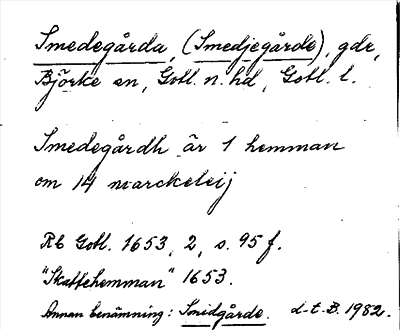 Smedegårda, (Smedjegårde), gde,
Björke sn, Gotl. n. hd, Gotl. l.
Smedegårdh är 1 hemman
om 14 marckeleij
Rb Gotl. 1653, 2, s. 95 f.
"Skattehemman" 1653.
Annan benämning: Smidgårde. d-t. B. 1982.